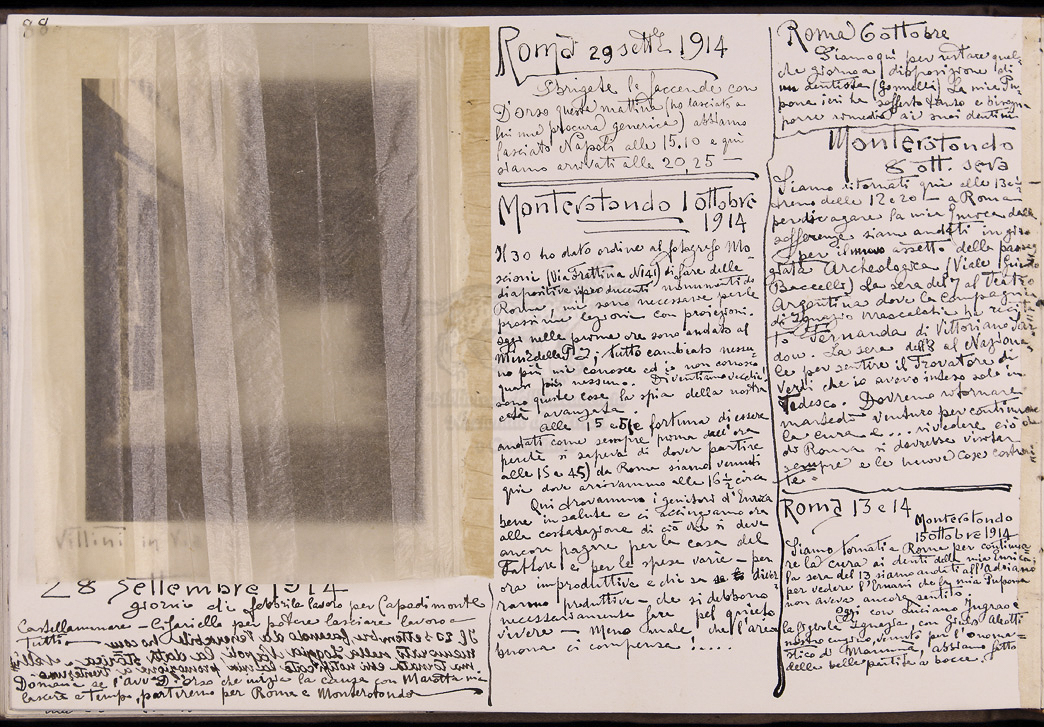 88
Villini in Via
28 Settembre 1914
giornio di febbrile lavoro per Capodimonte
Castellammare - Cifariello per potere lasciare lavoro a
tutti
Domani se l'avv. D'Orso che inizia la causa con Marotta mi
lascerà a tempo, partiremo per Roma e Monterotondo
Roma 29 sett. 1914
Sbrigate le faccende con
D'Orso questa mattina (ho lasciato a
lui una procura generica) abbiamo
lasciato Napoli alle 15.10 e qui
siamo arrivati alle 20,25 —
Monterotondo 1 ottobre
1914
Il 30 ho dato ordine al fotografo Mo
scioni (Via Frattina N 141) di fare delle
diapositive riproducenti monumenti di
Roma, mi sono necessarie per le
prossime lezioni con proiezioni.
oggi nelle prime ore sono andato al
Min. della P. I; tutto cambiato nessu
no più mi conosce ed io non conosco
quasi più nessuno. Diventiamo vecchi,
sono queste cose la spia della nostra
età avanzata.
alle 15 e 5 e fortuna di essere
andati come sempre prima dell'ora
perchè si sapeva di dover partire
alle 15 e 45) da Roma siamo venuti
qui dove arrivammo alle 16 ½ circa
Qui trovammo i genitori d'Enrica
bene in salute e ci accingiamo ora
alla constatazione di ciò che si deve
ancora pagare per la casa del
Fattore e per le spese varie - per
ora improduttive e chi sa se diver
ranno produttive - che si debbono
necessariamente fare pel quieto
vivere — Meno male che l'aria
buona ci compensa !....
Roma 6 ottobre
Siamo qui per restare qual
che giorno a disposizione di
un dentista (Gommelli) La mia Pu
pona ieri ha sofferto tanto e bisogna
porre rimedio ai suoi dentini
Monterotondo
8 ott. sera
Siamo ritornati qui alle 13 c.
treno delle 12 e 20 — a Roma
per divagare la mia Mora dalle
sofferenze siamo andati in giro
per il nuovo assetto della passeg
giata Archeologica (Viale Guido
Baccelli) La sera del 7 al Teatro
Argentina dove la Compagnia
di Ignazio Mascalchi ha reci
to Fernanda di Vittoriano Sar
dou. La sera dell'8 al Naziona
le per sentire il Trovatore di
Verdi che io avevo inteso solo in
Tedesco. Dovremo ritornare
martedì venturo per continuare
la cura e... rivedere ciò che
di Roma si dovrebbe visitar
sempre e le nuove cose costrui
te =
Roma 13 e 14
Monterotondo
15 ottobre 1914
Siamo tornati a Roma per continua
re la cura ai denti della mia Enrica.
la sera del 13 siamo andati all'Adriano
per vedere l'Ernani che la mia Pupona
non aveva ancora sentito.
Oggi con Luciano Ingrao e
nostro cugino, venuto per l'onoma
stico di Mamma, abbiamo fatto
delle belle partite a bocce.